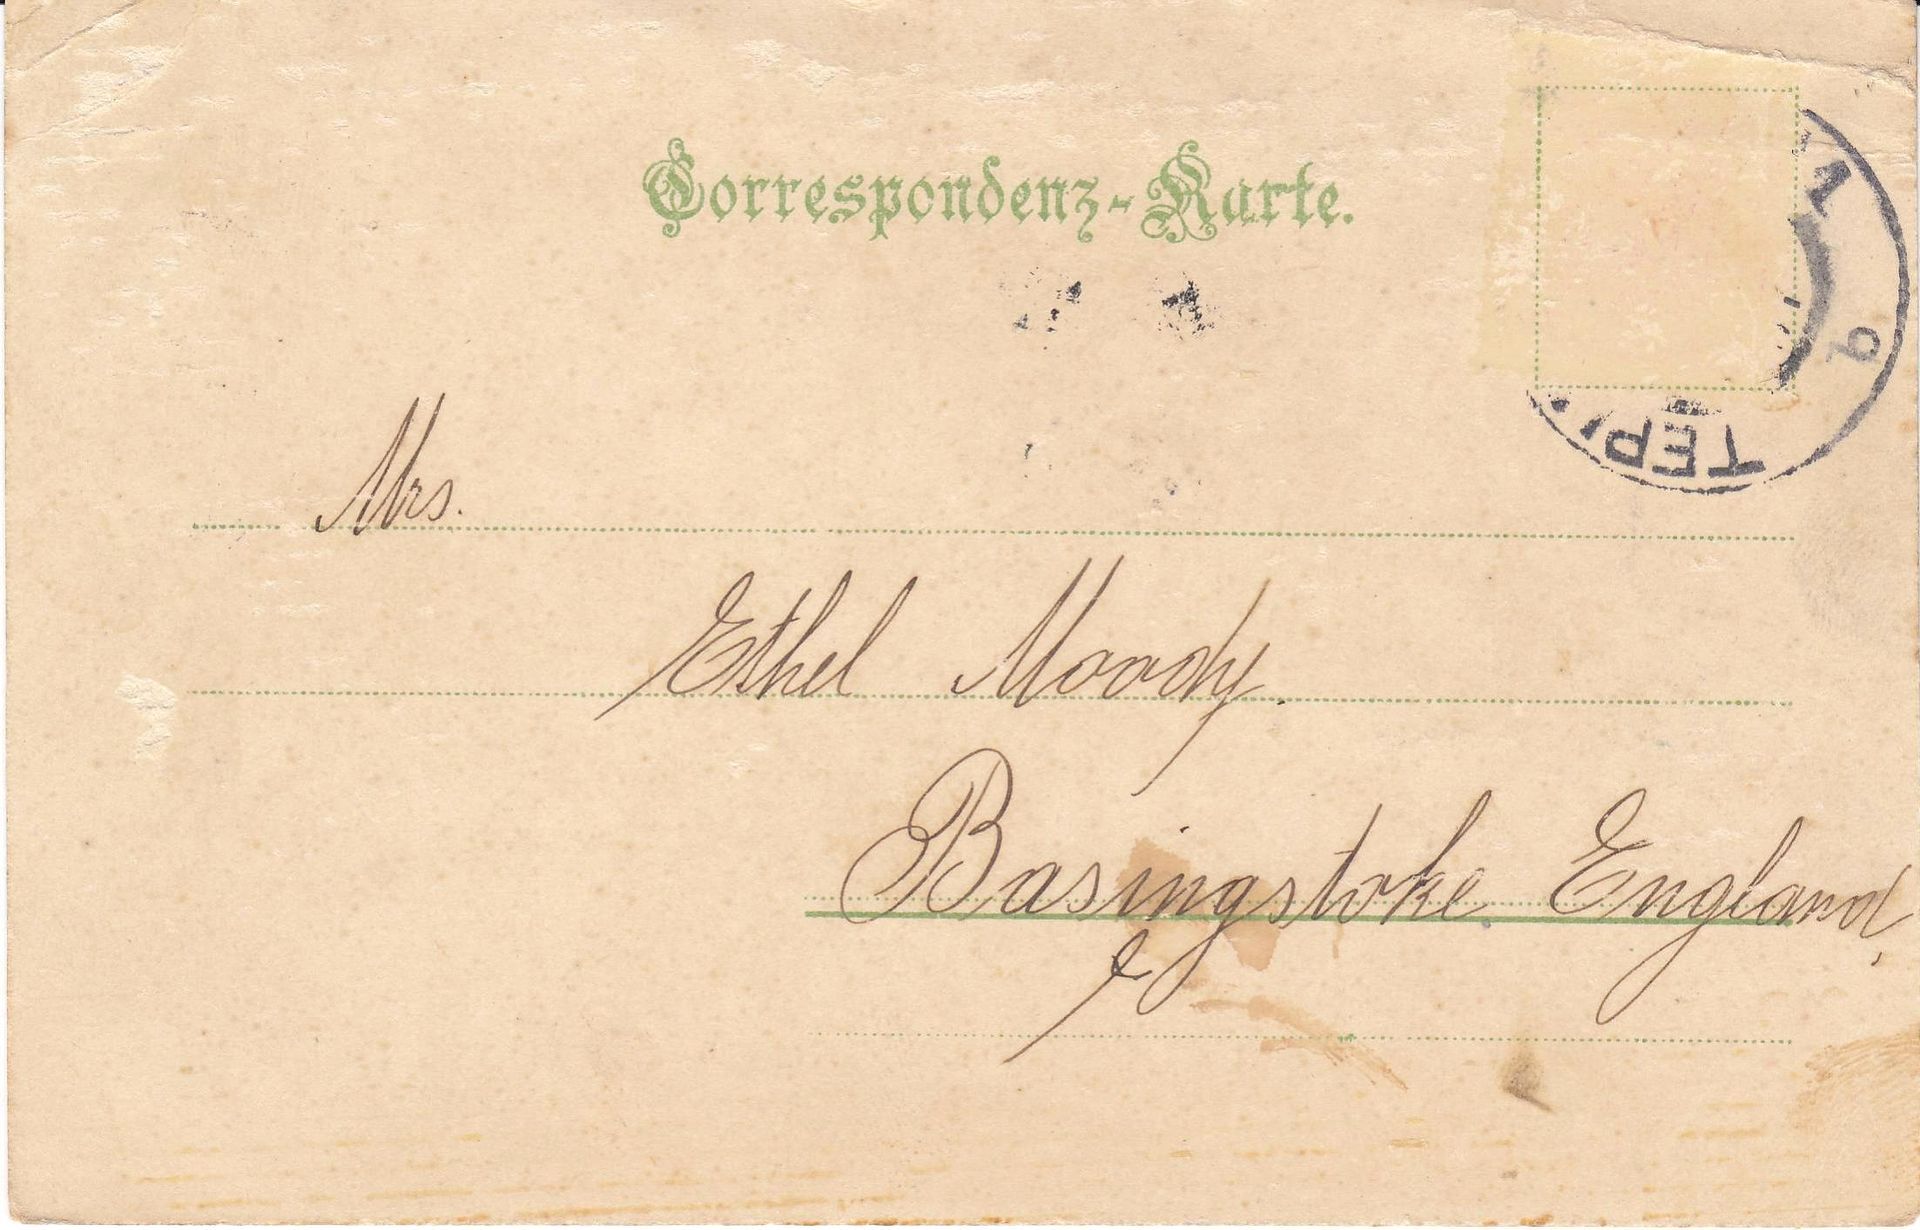 Correspondenz-Karte.
1
9
TEPL
Mrs.
Ethel Moody.
Basingstoke England,